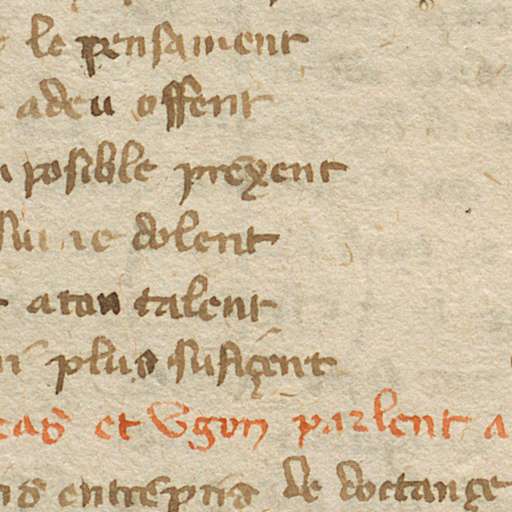 le pensament
adeu offent
posible prexent
sui ie dolent
aton talent
plus sufiçent
et Vgon parlent a
entrepris de doctançe